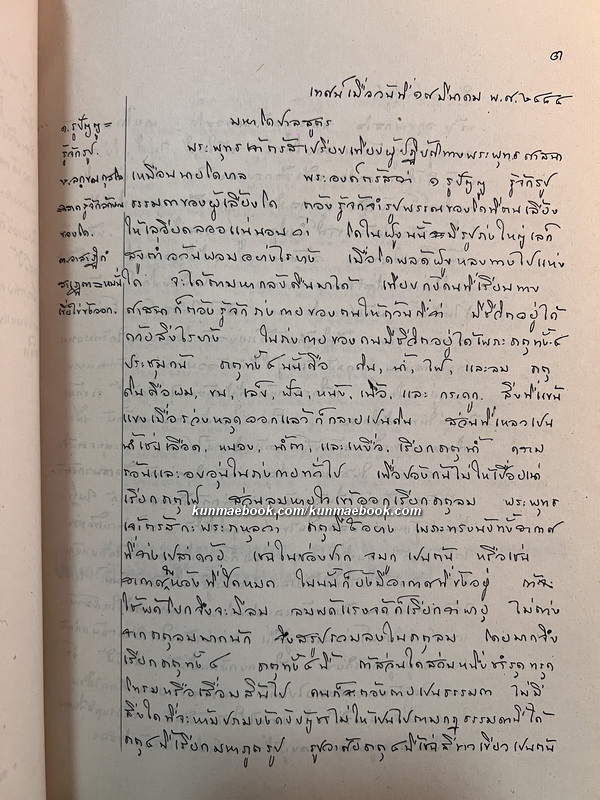 ๓
เทศน์เมื่อวันที่ ๑๙ มีนาคม พ.ศ. ๒๔๙๕
มหาโคปาลสูตร
๑. รูปัญญู =
รู้จักรูป.
ของโค.
พระพุทธเจ้าตรัสเปรียบเทียบผู้ปฏิบัติทางพระพุทธศาสนา
เหมือนนายโคบาล พระองค์ตรัสว่า ๑ รูปัญญู รู้จักรูป
ธรรมดาของผู้เลี้ยงโค ต้องรู้จักจำรูปพรรณของโคที่ตนเลี้ยง
ให้ละเอียดลออแน่นอนว่า โคในฝูงนั้นมีรูปร่างใหญ่เล็ก
สูงต่ำอ้วนผอมอย่างไรบ้าง เมื่อโคพลัดฝูงหลงทางไปแห่ง
ใด จะได้ตามหากลับคืนมาได้ เทียบกับคนที่เรียนทาง
ศาสนาก็ต้องรู้จักร่างกายของตนให้ถ้วนถี่ว่า มีชีวิตอยู่ได้
ด้วยสิ่งไรบ้าง ในร่างกายของคนมีชีวิตอยู่ได้เพราะธาตุทั้ง ๔
ประชุมกัน ธาตุทั้ง ๔ นั้นคือ ดิน, น้ำ, ไฟ, และลม ธาตุ
ดินคือผม, ขน, เล็บ, ฟัน, หนัง, เนื้อ, และ กระดูก. สิ่งที่แข้น
แข็งเมื่อร่วงหลุดออกแล้วก็กลายเป็นดิน ส่วนที่เหลวเป็น
น้ำเช่นเลือด, หนอง, น้ำตา, และเหงื่อ, เรียกธาตุน้ำ ความ
ร้อนและอบอุ่นในร่างกายทั่วไป เพื่อป้องกันไม่ให้เปื่อยเน่า
เรียกธาตุไฟ ส่วนลมหายใจเข้าออกเรียกธาตุลม พระพุทธ
เจ้าตรัสกะพระราหุลว่า ธาตุมี ๕ อย่าง เพราะทรงนับทั้งอากาศ
ที่ว่างเปล่าด้วย เช่นในช่องปาก จมูก เป็นต้น หรือเช่น
อากาศในห้องที่ปิดหมด ในนั้นก็ยังมีอากาศที่ขังอยู่ ถ้า
ใช้พัดโบกจึงจะมีลม ลมพัดแรงจัดก็เรียกว่าพายุ ไม่ต่าง
จากธาตุลมมากนัก จึงสรุปรวมลงในธาตุลม โดยมากจึง
เรียกธาตุทั้ง ๔ ธาตุทั้ง ๔ นี้ ถ้าส่วนใดส่วนหนึ่งชำรุดทรุด
โทรมหรือเสื่อมสิ้นไป คนก็จะต้องตายเป็นธรรมดา ไม่มี
สิ่งใดที่จะห้ามปรามบังคับบัญชาไม่ให้เป็นไปตามกฎธรรมดานี้ได้
ธาตุ ๔ นี้เรียกมหาภูตรูป รูปอาศัยธาตุ ๔ นี้เช่นสีขาวเขียวเป็นต้น
kunmaebook.com/kunmaebook.com